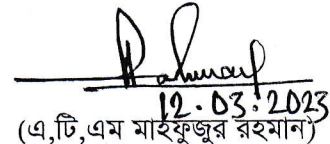 Rahman
12.03.2023
(এ,টি,এম মাহফুজুর রহমান)